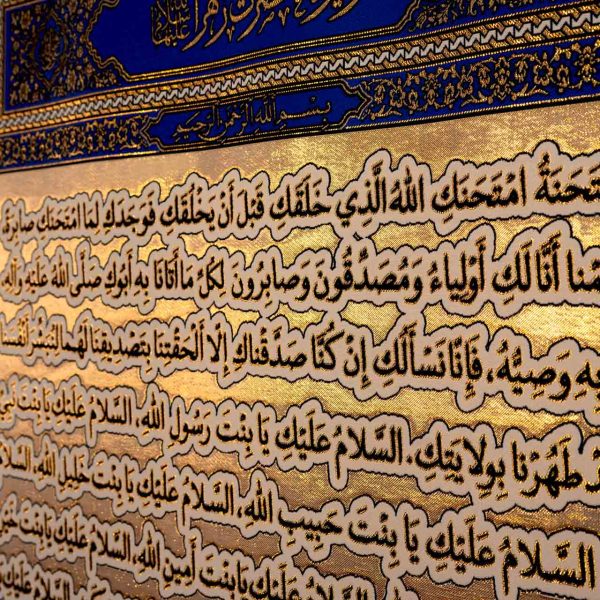 حضرت زهرا سلام الله علیها
بِسْمِ اللهِ الرَّحْمنِ الرَّحيمِ
امْتَحَنَكِ اللهُ الَّذِي خَلَقَكِ قَبْلَ أَنْ يَخْلُقَكِ فَوَجَدَكِ لِمَا امْتَحَنَكِ صابِرَةً،
أَنَّا لَكِ أَوْلِياءُ وَمُصَدِّقُونَ وَصابِرُونَ لِكُلِّ ما أَتانا بِهِ أَبُوكِ صَلَّى اللهُ عَلَيْهِ وَآلِهِ
بِهِ وَصِيُّهُ، فَإِنّا نَسْأَلُكِ إِنْ كُنّا صَدَّقْناكِ إِلّا أَلْحَقْتِنا بِتَصْدِيقِنا لَهُما لِنُبَشِّرَ أَنْفُسَنا
طَهُرْنا بِوِلايَتِكِ. السَّلامُ عَلَيْكِ يا بِنْتَ رَسُولِ اللهِ، السَّلامُ عَلَيْكِ يا بِنْتَ نَبِيِّ
السَّلامُ عَلَيْكِ يا بِنْتَ حَبِيبِ اللهِ، السَّلامُ عَلَيْكِ يا بِنْتَ خَلِيلِ اللهِ، السَّلامُ
السَّلامُ عَلَيْكِ يا بِنْتَ أَمِينِ اللهِ، السَّلامُ عَلَيْكِ يا بِنْتَ
السَّلامُ عَلَيْكِ